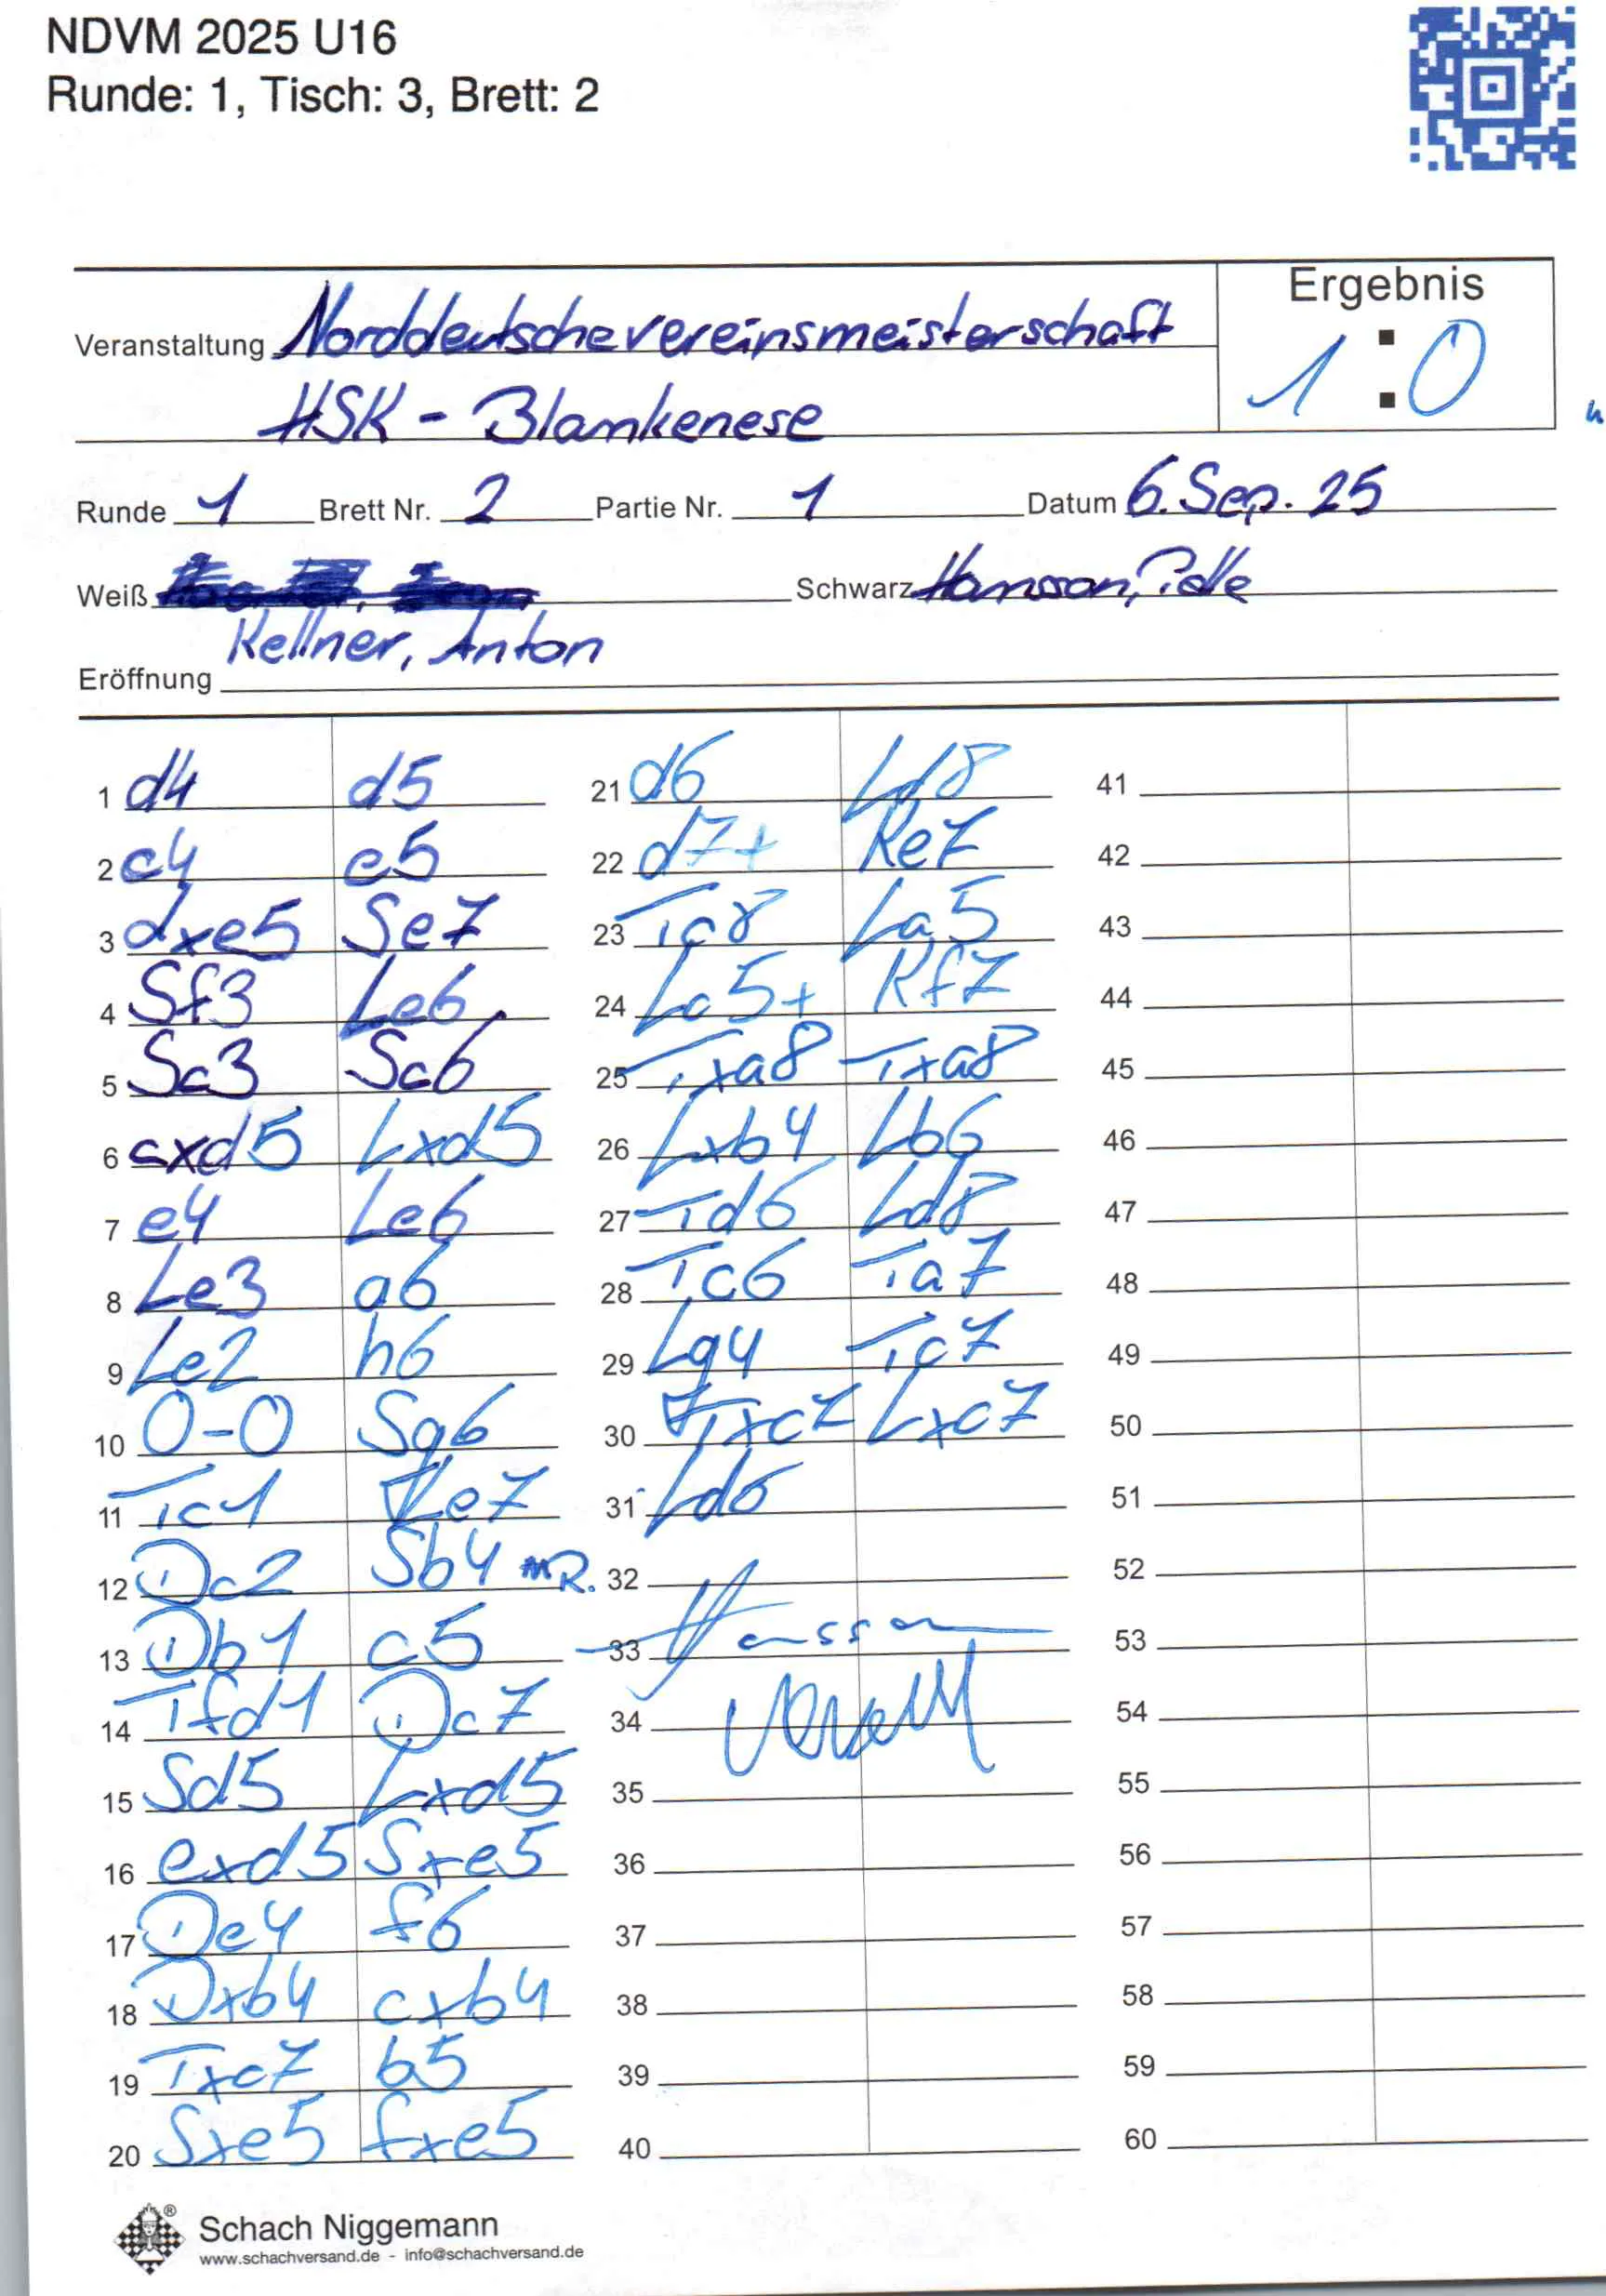 NDVM 2025 U16
Runde: 1, Tisch: 3, Brett: 2
Ergebnis
1:0
Veranstaltung Norddeutschevereinsmeisterschaft
HSK - Blankenese
Runde 1 Brett Nr. 2 Partie Nr. 1 Datum 6. Sep. 25
Weiß Schwarz Hansson,
Kellner, Anton
Eröffnung
1 d4 d5
2 c4 e5
3 dxe5 Se7
4 Sf3 Le6
5 Sc3 Sc6
6 cxd5 Lxd5
7 e4 Le6
8 Le3 a6
9 Le2 h6
10 0-0 Sg6
11 Tc1 Le7
12 Dc2 Sb4 R.
13 Db1 c5
14 Tfd1 Dc7
15 Sd5 Lxd5
16 exd5 Sxe5
17 De4 f6
18 Dxb4 cxb4
19 Txc7 b5
20 Sxe5 fxe5
21 d6 Ld8
22 d7+ Ke7
23 Tc8 La5
24 Lc5+ Kf7
25 Txa8 Txa8
26 Lxb4 Lb6
27 Td6 Ld8
28 Tc6 Ta7
29 Lg4 Tc7
30 Txc7 Lxc7
31 Ld6
32
33 Hansson
34
35
36
37
38
39
40
41
42
43
44
45
46
47
48
49
50
51
52
53
54
55
56
57
58
59
60
Schach Niggemann
www.schachversand.de - info@schachversand.de